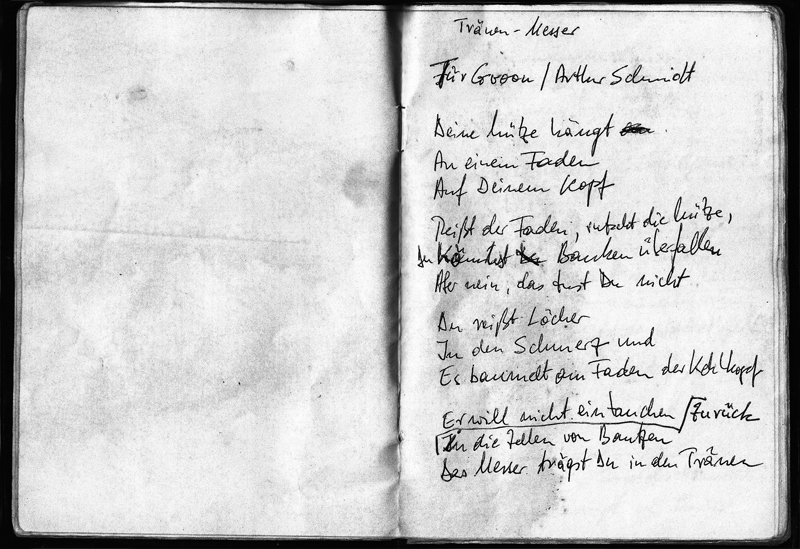 Tränen-Messer
Für Gooon / Arthur Schmidt
Deine Mütze hängt
An einem Faden
Auf Deinem Kopf
Reißt der Faden, rutscht die Mütze,
Du könntest Banken überfallen
Aber nein, das tust Du nicht
Du reißt Löcher
In den Schmerz und
Es baumelt am Faden der Kehlkopf
Er will nicht eintauchen / Zurück
In die Zellen von Bautzen
Das Messer trägst Du in den Tränen